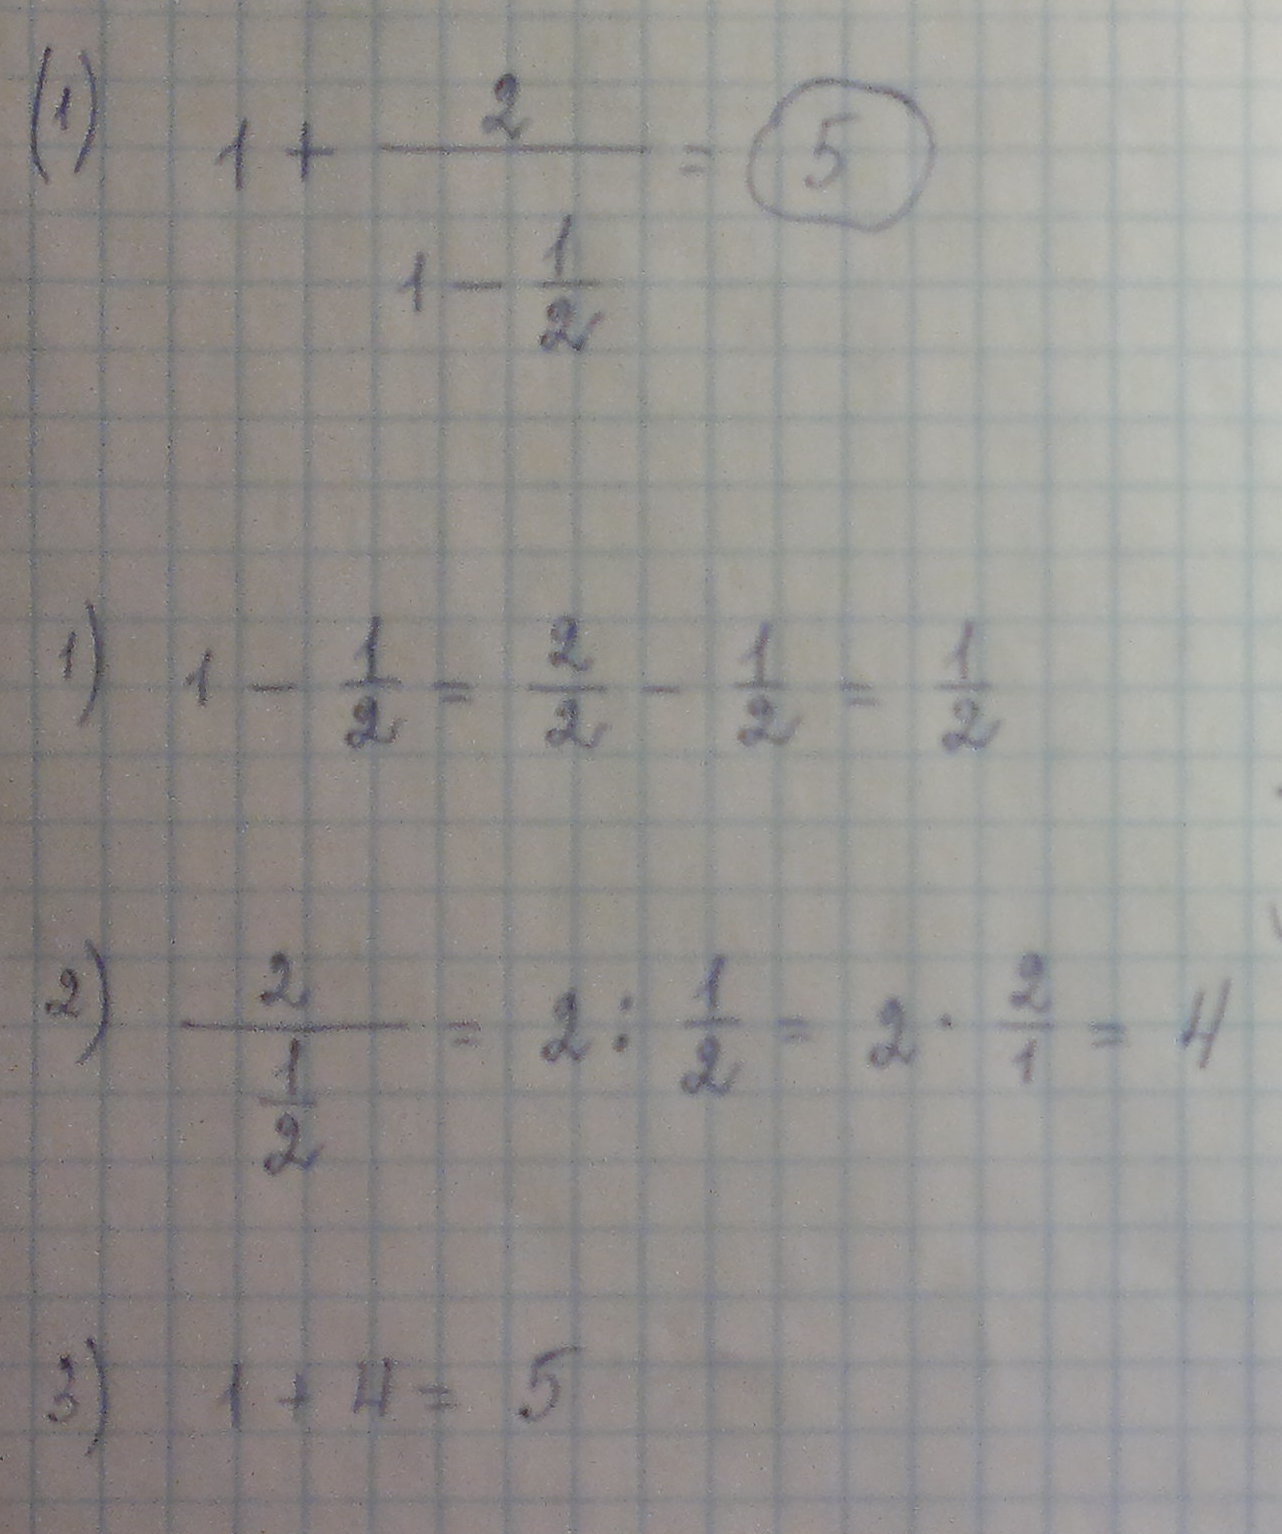 (1) 1 + 2 / (1 - 1/2) = 5
1) 1 - 1/2 = 2/2 - 1/2 = 1/2
2) 2 / (1/2) = 2 : 1/2 = 2 · 2/1 = 4
3) 1 + 4 = 5